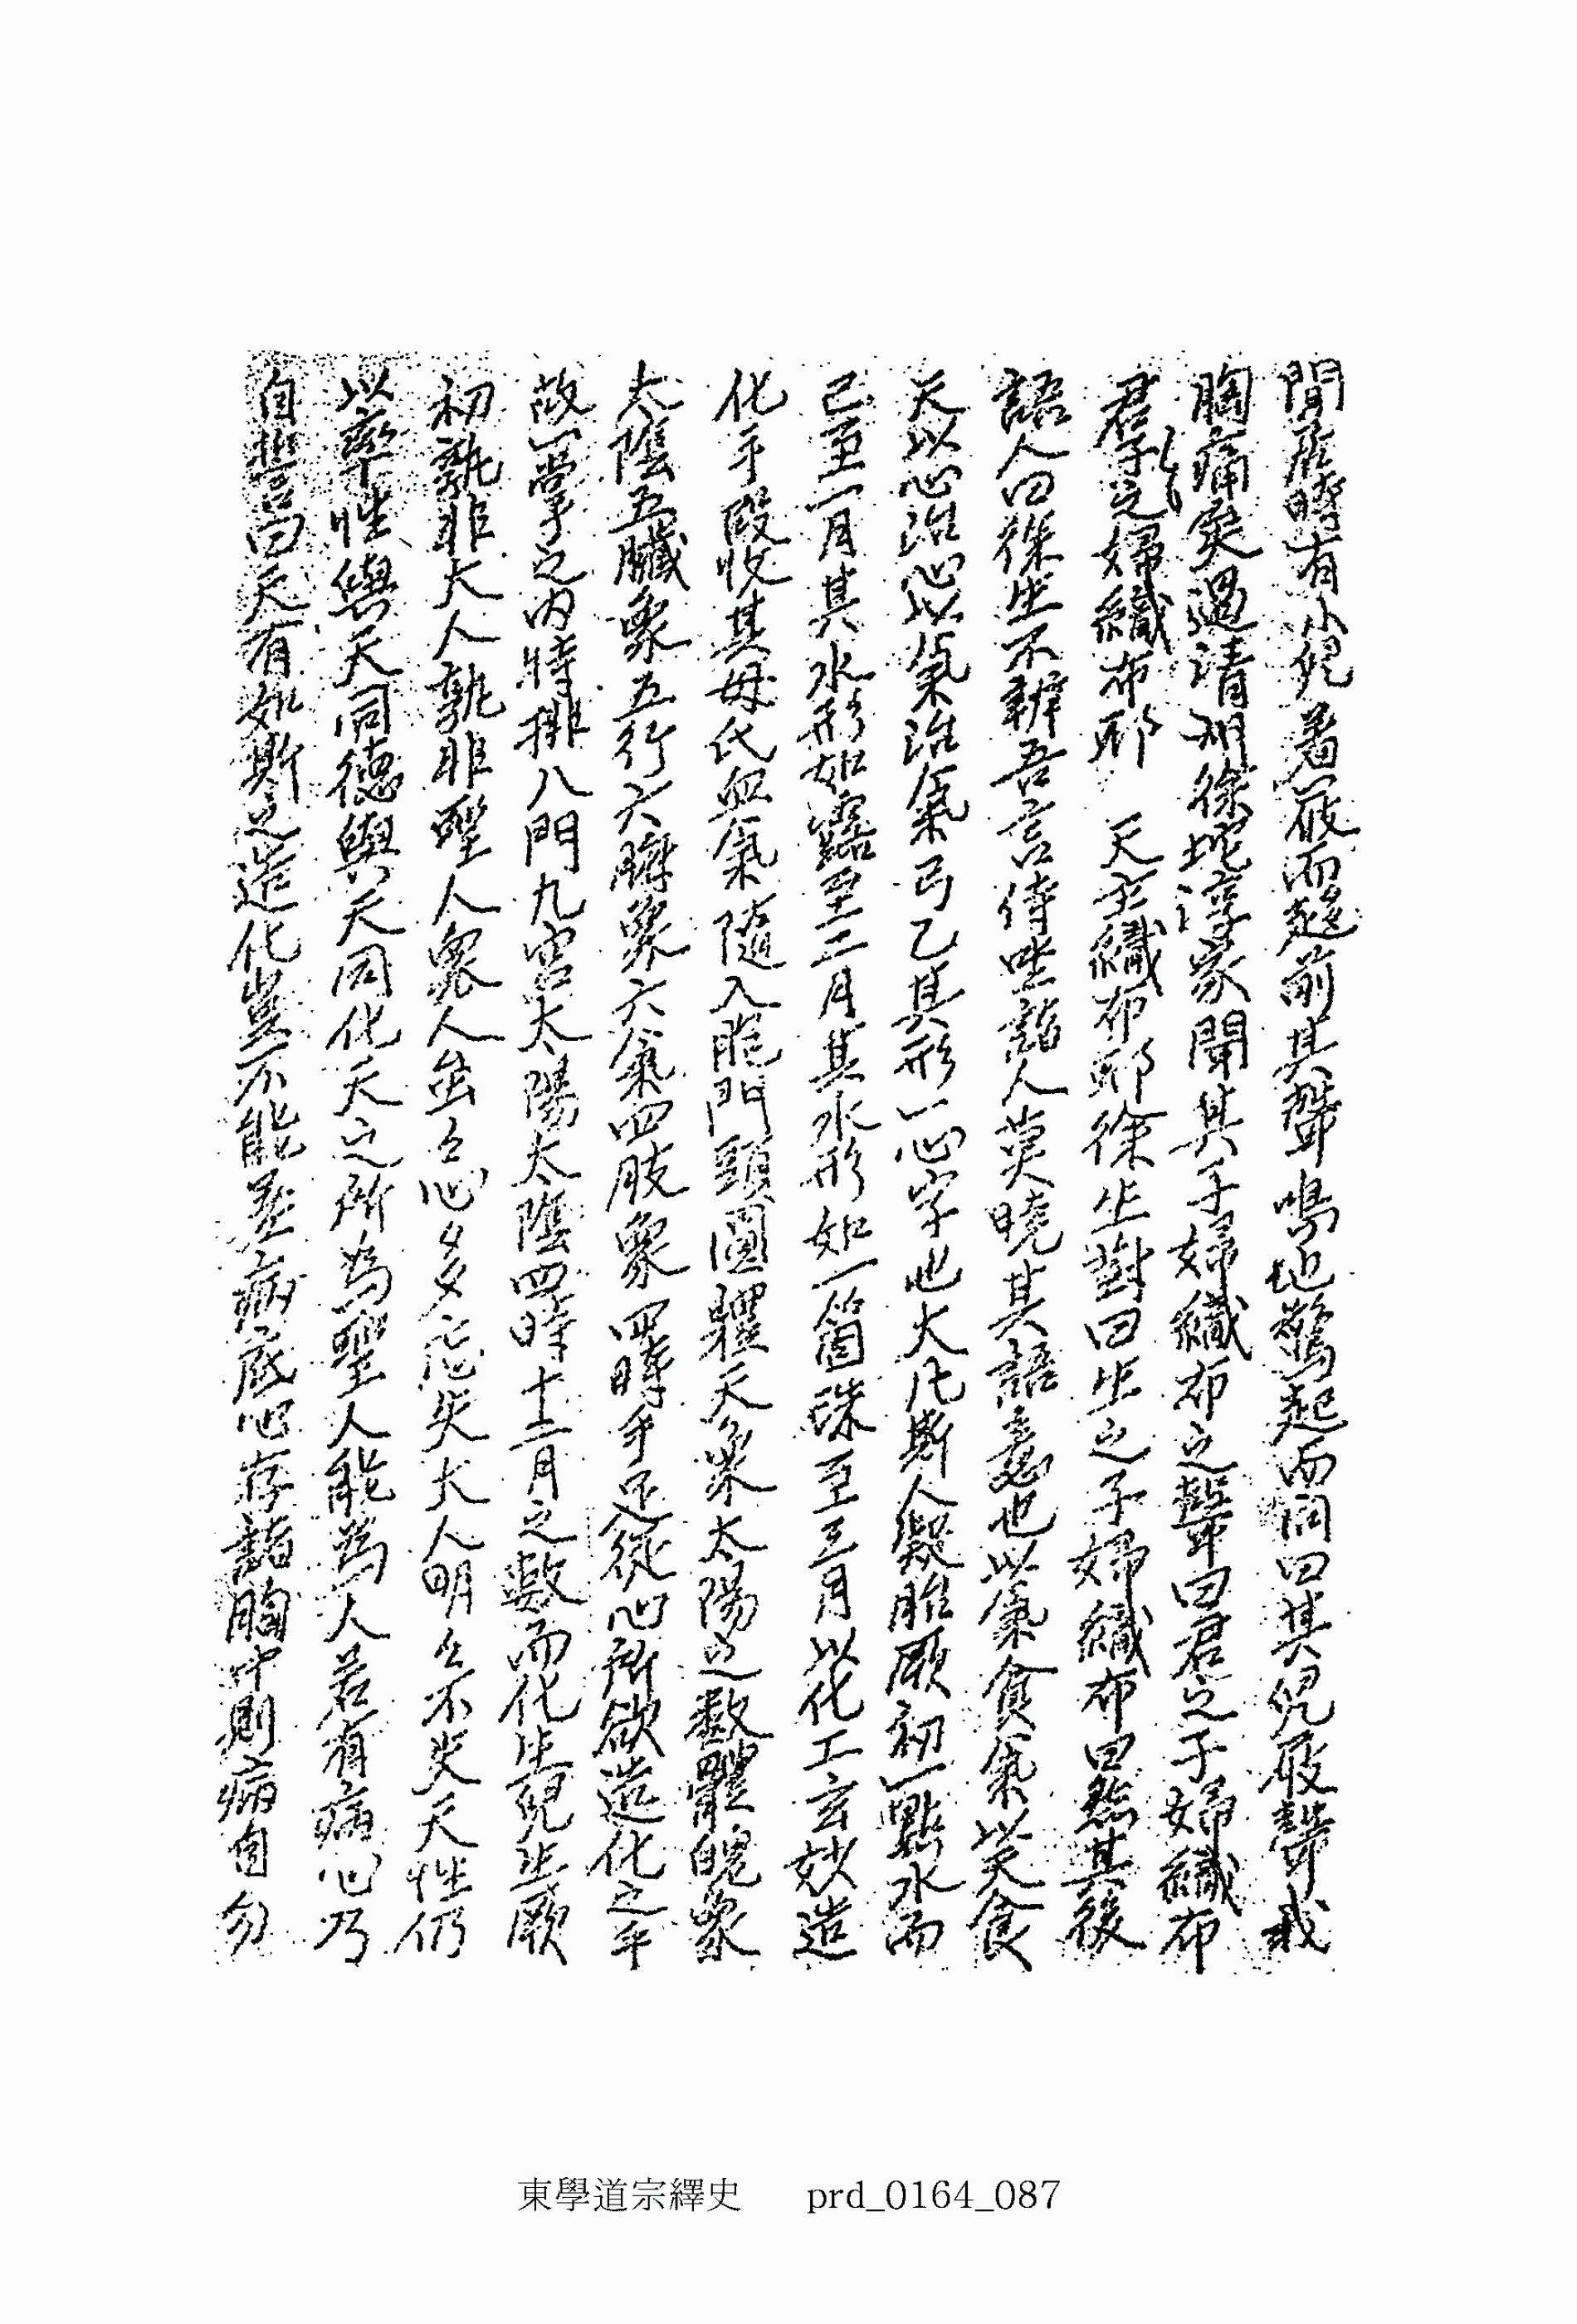 閒居時有小兒着屐而趍前其聲鳴地驚起而問曰其兒屐聲我
胸痛矣過淸州徐垞淳家聞其子婦織布之聲曰君之子婦織布
君子之婦織布耶 天主織布耶徐生對曰生之子婦織布曰然其後
語人曰徐生不辨吾言侍坐諸人莫曉其語意也以氣食氣以天食
天以心治心以氣治氣弓乙其形一心字也大凡斯人凝胎厥初一點水而
已至一月其水形如露至二月其水形如一箇珠至三月以化工玄妙造
化手段收其母氏血氣隨入胞門頭圓體天象太陽之數體魄象
太陰五臟象五行六腑象六氣四肢象四時手足從心所欲造化之手
故一掌之內特排八門九宮太陽太陰四時十二月之數而化生兒生厥
初孰非大人孰非聖人衆人蚩々心多忘失大人明々不失天性仍
以率性與天同德與天同化天之所爲聖人能爲人若有病心乃
自誓曰天有如斯之造化豈不能差病底心存諸胸中則病自勿
東學道宗繹史 prd_0164_087